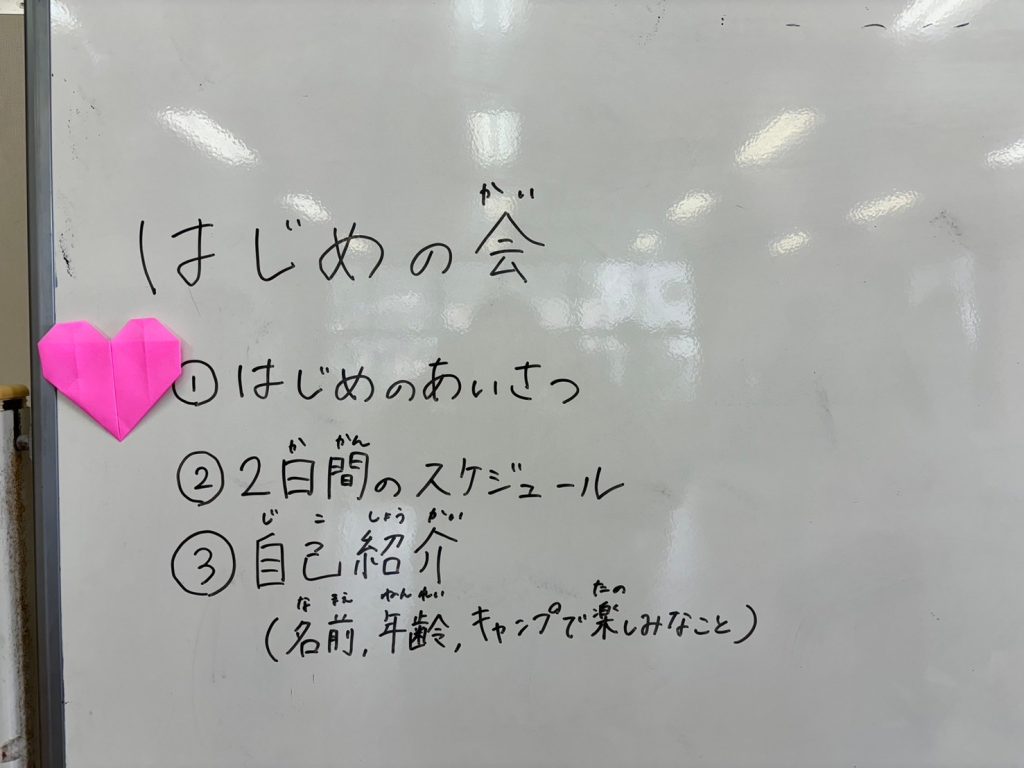 かい
はじめの会
①はじめのあいさつ
か かん
②2日間のスケジュール
じ こ しょう かい
③自己紹介
な まえ ねんれい たの
(名前,年齢,キャンプで楽しみなこと)